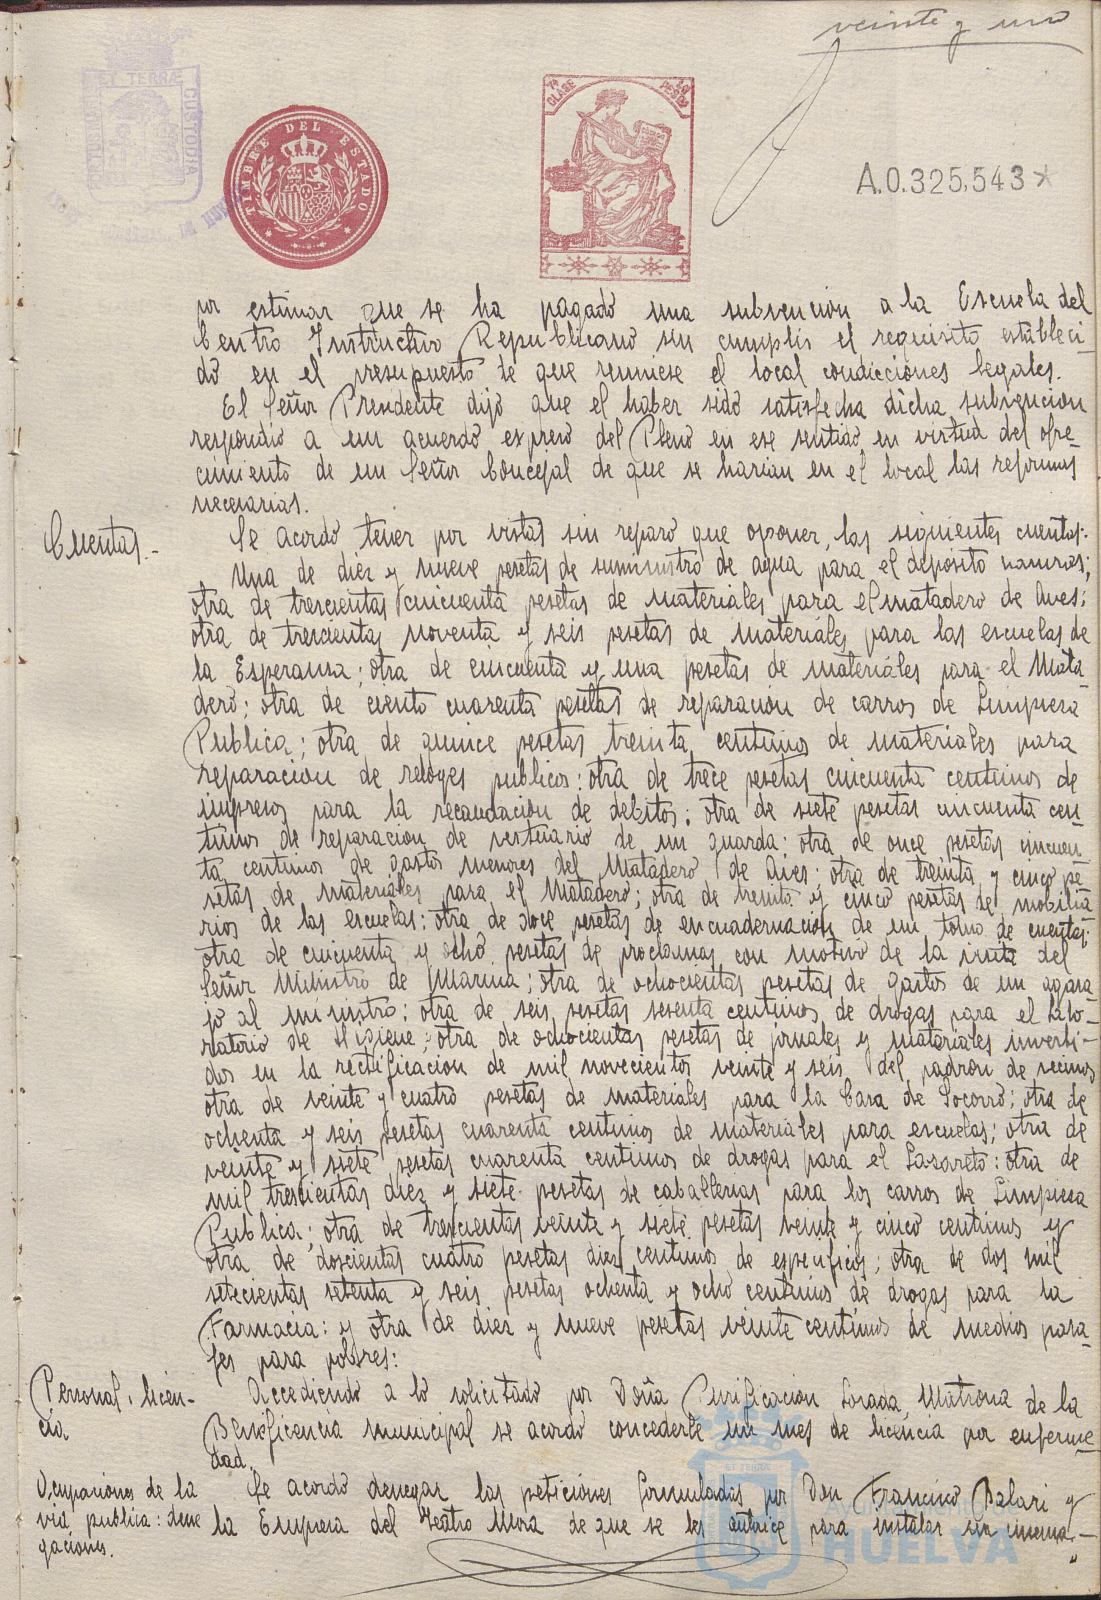 veinte y uno
ET TERRÆ
CUSTODIA
TIMBRE DEL ESTADO
7ª CLASE
10 PESETAS
A.0.325,543
por estimar que se ha pagado una subvención a la Escuela del
Centro Instructivo Republicano sin cumplir el requisito estableci-
do en el presupuesto de que reuniese el local condicciones legales.
El Señor Presidente dijo que el haber sido satisfecha dicha subvención
respondió a un acuerdo expreso del Pleno en ese sentido en virtud del ofre-
cimiento de un Señor Concejal de que se harian en el local las reformas
necesarias.
Cuentas.-
Se acordó tener por vistas sin reparo que oponer, las siguientes cuentas:
Una de diez y nueve pesetas de suministro de agua para el deposito
otra de trescientas cincuenta pesetas de materiales para el matadero de Aves;
otra de trescientas noventa y seis pesetas de materiales para las escuelas de
la Esperanza; otra de cincuenta y una pesetas de materiales para el Mata-
dero; otra de ciento cuarenta pesetas de reparación de carros de Limpieza
Publica; otra de quince pesetas treinta centimos de materiales para
reparación de relojes publicos: otra de trece pesetas cincuenta centimos de
impresos para la recaudación de debitos; otra de siete pesetas cincuenta cen-
timos de reparación de vestuario de un guarda: otra de once pesetas cincuen-
ta centimos de gastos menores del Matadero de Aves; otra de treinta y cinco pe-
setas de materiales para el Matadero; otra de treinta y cinco pesetas de mobilia-
rios de las escuelas: otra de doce pesetas de encuadernación de un tomo de cuentas;
otra de cincuenta y ocho pesetas de proclamas con motivo de la visita del
Señor Ministro de Marina; otra de ochocientas pesetas de gastos de un agasa-
jo al ministro; otra de seis pesetas sesenta centimos de drogas para el Labo-
ratorio de Higiene; otra de ochocientas pesetas de jornales y materiales inverti-
dos en la rectificación de mil novecientos veinte y seis del padrón de vecinos
otra de veinte y cuatro pesetas de materiales para la Casa de Socorro; otra de
ochenta y seis pesetas cuarenta centimos de materiales para escuelas; otra de
veinte y siete pesetas cuarenta centimos de drogas para el Lazareto: otra de
mil trescientas diez y siete pesetas de caballerias para los carros de Limpieza
Publica; otra de trescientas veinte y siete pesetas veinte y cinco centimos y
otra de doscientas cuatro pesetas diez centimos de especificos; otra de dos mil
setecientas setenta y seis pesetas ochenta y ocho centimos de drogas para la
Farmacia: y otra de diez y nueve pesetas veinte centimos de medios pasa-
jes para pobres:
Personal: licen-
cia.
Accediendo a lo solicitado por Doña Purificación Losada, Matrona de la
Beneficencia municipal se acordó concederle un mes de licencia por enferme-
dad.
Ocupaciones de la
via publica: dene-
gaciones.
Se acordó denegar las peticiones formuladas por Don Francisco Balari y
la Empresa del Teatro Mora de que se les autorice para instalar un cinema-
Ayuntamiento de
HUELVA